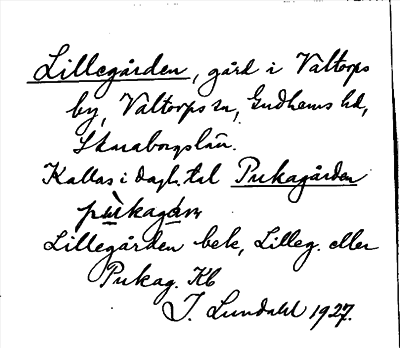 Lillegården, gård i Valtorps
by, Valtorps sn, Gudhems hd,
Skaraborgs län.
Kallas i dagl. tal Pukagården
pùkagán,
Lillegården bek, Lilleg. eller
Pukag. Kb
J. Lundahl 1927.